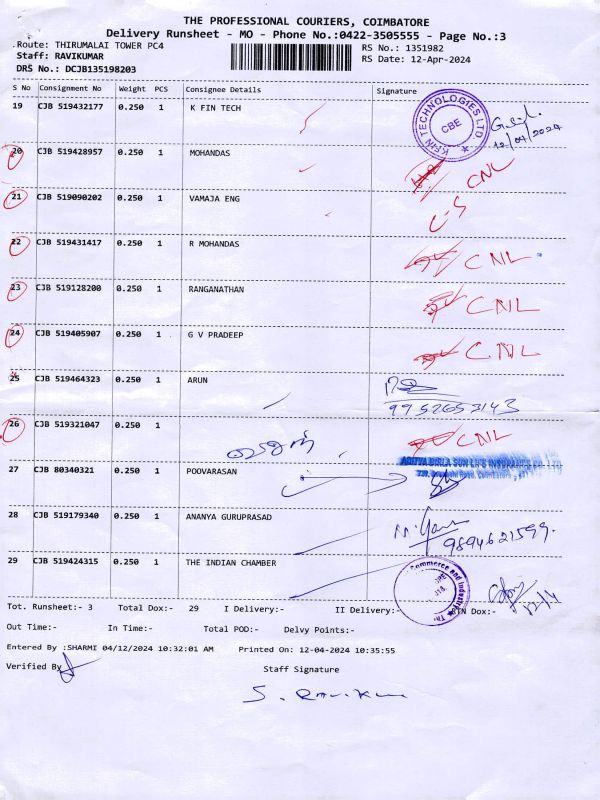 THE PROFESSIONAL COURIERS, COIMBATORE
Delivery Runsheet - MO - Phone No.:0422-3505555 - Page No.:3
Route: THIRUMALAI TOWER PC4
RS No.: 1351982
Staff: RAVIKUMAR
RS Date: 12-Apr-2024
DRS No.: DCJB135198203
S No Consignment No Weight PCS Consignee Details Signature
19 CJB 519432177 0.250 1 K FIN TECH
KFIN TECHNOLOGIES LTD
CBE
12/04/2024
20 CJB 519428957 0.250 1 MOHANDAS CNL
21 CJB 519090202 0.250 1 VAMAJA ENG
22 CJB 519431417 0.250 1 R MOHANDAS CNL
23 CJB 519128200 0.250 1 RANGANATHAN CNL
24 CJB 519405907 0.250 1 G V PRADEEP CNL
25 CJB 519464323 0.250 1 ARUN
9952653143
26 CJB 519321047 0.250 1 CNL
ADITYA BIRLA SUN LIFE INSURANCE CO. LTD
27 CJB 80340321 0.250 1 POOVARASAN
28 CJB 519179340 0.250 1 ANANYA GURUPRASAD
9894621599
29 CJB 519424315 0.250 1 THE INDIAN CHAMBER
Commerce and Industry
Tot. Runsheet:- 3 Total Dox:- 29 I Delivery:- II Delivery:- RTN Dox:-
Out Time:- In Time:- Total POD:- Delvy Points:-
Entered By :SHARMI 04/12/2024 10:32:01 AM Printed On: 12-04-2024 10:35:55
Verified By
Staff Signature
S. Ravikumar